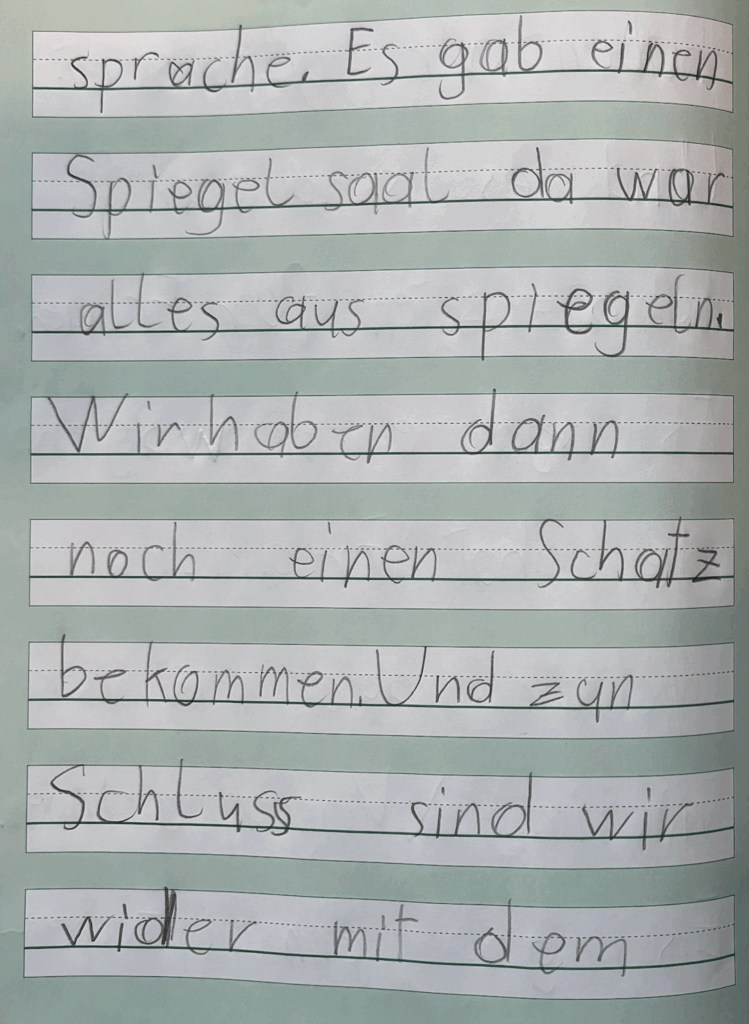 sprache. Es gab einen
Spiegel saal da war
alles aus spiegeln.
Wir haben dann
noch einen Schatz
bekommen. Und zun
Schluss sind wir
wider mit dem